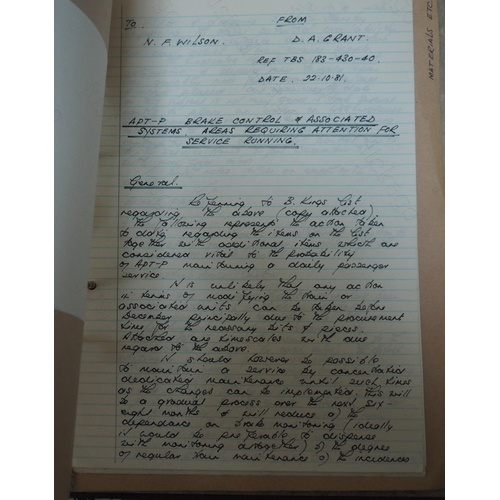 To
FROM
N. F. WILSON.
D. A. GRANT.
REF TBS 183-430-40.
DATE. 22.10.81.
APT-P BRAKE CONTROL & ASSOCIATED
SYSTEMS. AREAS REQUIRING ATTENTION FOR
SERVICE RUNNING.
General.
Referring to B. Kings list
regarding the above (copy attached)
the following represents the action taken
to date regarding the items on the list
together with additional items which are
considered vital to the probability
of APT-P maintaining a daily passenger
service.
It is unlikely that any action
in terms of modifying the train or
associated units can be taken before
December principally due to the procurement
time for the necessary bits & pieces.
Attached are timescales with due
regard to the above.
It should however be possible
to maintain a service by concentrated
dedicated maintenance until such times
as the changes can be implemented. This will
be a gradual process over the next six-
eight months & will reduce a) the
dependance on brake monitoring (ideally
it would be preferable to dispense
with monitoring altogether) b) the degree
of regular train maintenance c) the incidences
MATERIALS ETC.